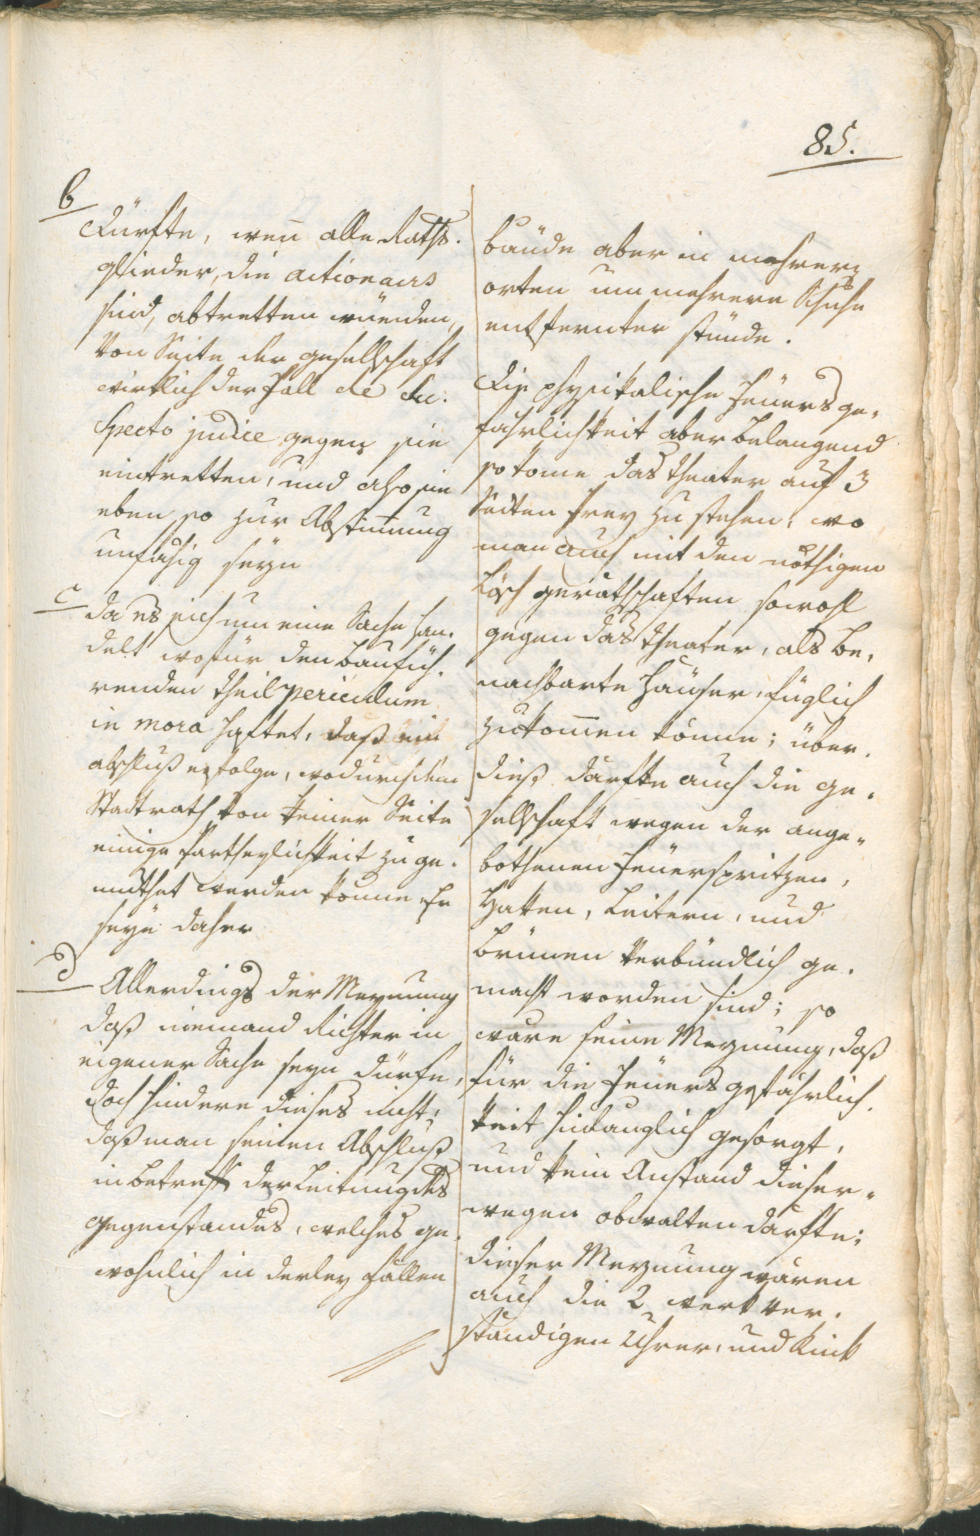 85.
b
Dürfte, weñ alle Raths.
glieder, die actionairs
sind, abtretten würden,
von Seite der gesellschaft
wirklich der Fall de su:
specto judice gegen sie
eintretten, und also sie
eben so zur Abstim̄ung
unfähig seyn
c
da es sich um eine Sache han.
delt wofür den baufüh.
renden theil periculum
in mora haftet, daß ein
abschluß erfolge, wodurch dem
Stadtrath von keiner Seite
einige Partheylichkeit zu ge.
muthet werden könne Er
seye daher
d
Allerdings der Meynung
daß niemand Richter in
eigener Sache seyn dürfe,
doch hindere dieses nicht,
daß man seinen Abschluß
in betreff der Leitung des
gegenstandes, welches ge.
wohnlich in derley Fällen
bäude aber in mehrern
orten um mehrere Schuhe
entfernter stünde.
Die physikalische Feüersge,
fährlichkeit aber belangend
so käme das theater auf 3
Seiten frey zu stehen, wo
man auch mit den nöthigen
Lösch geräthschaften sowohl
gegen das theater, als be,
nachbarte Häuser, füglich
zukom̄en könne; über.
dieß dürfte auch die ge.
sellschaft wegen der ange„
bothenen Feüerspritzen,
Haken, Leitern, und
brünen verbündlich ge.
macht worden sind; so
wäre seine Meynung, daß
für die Feüersgefährlich.
keit hinlänglich gesorgt,
und kein Anstand dieser„
wegen obwalten dürfte;
dieser Meynung wären
auch die 2 werkver.
ständigen Uhrer, und Kink